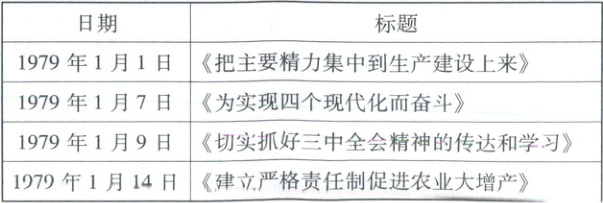 日期 标题
1979年1月1日 《把主要精力集中到生产建设上来》
1979年1月7日 《为实现四个现代化而奋斗》
1979年1月9日 《切实抓好三中全会精神的传达和学习》
1979年1月14日 《建立严格责任制促进农业大增产》